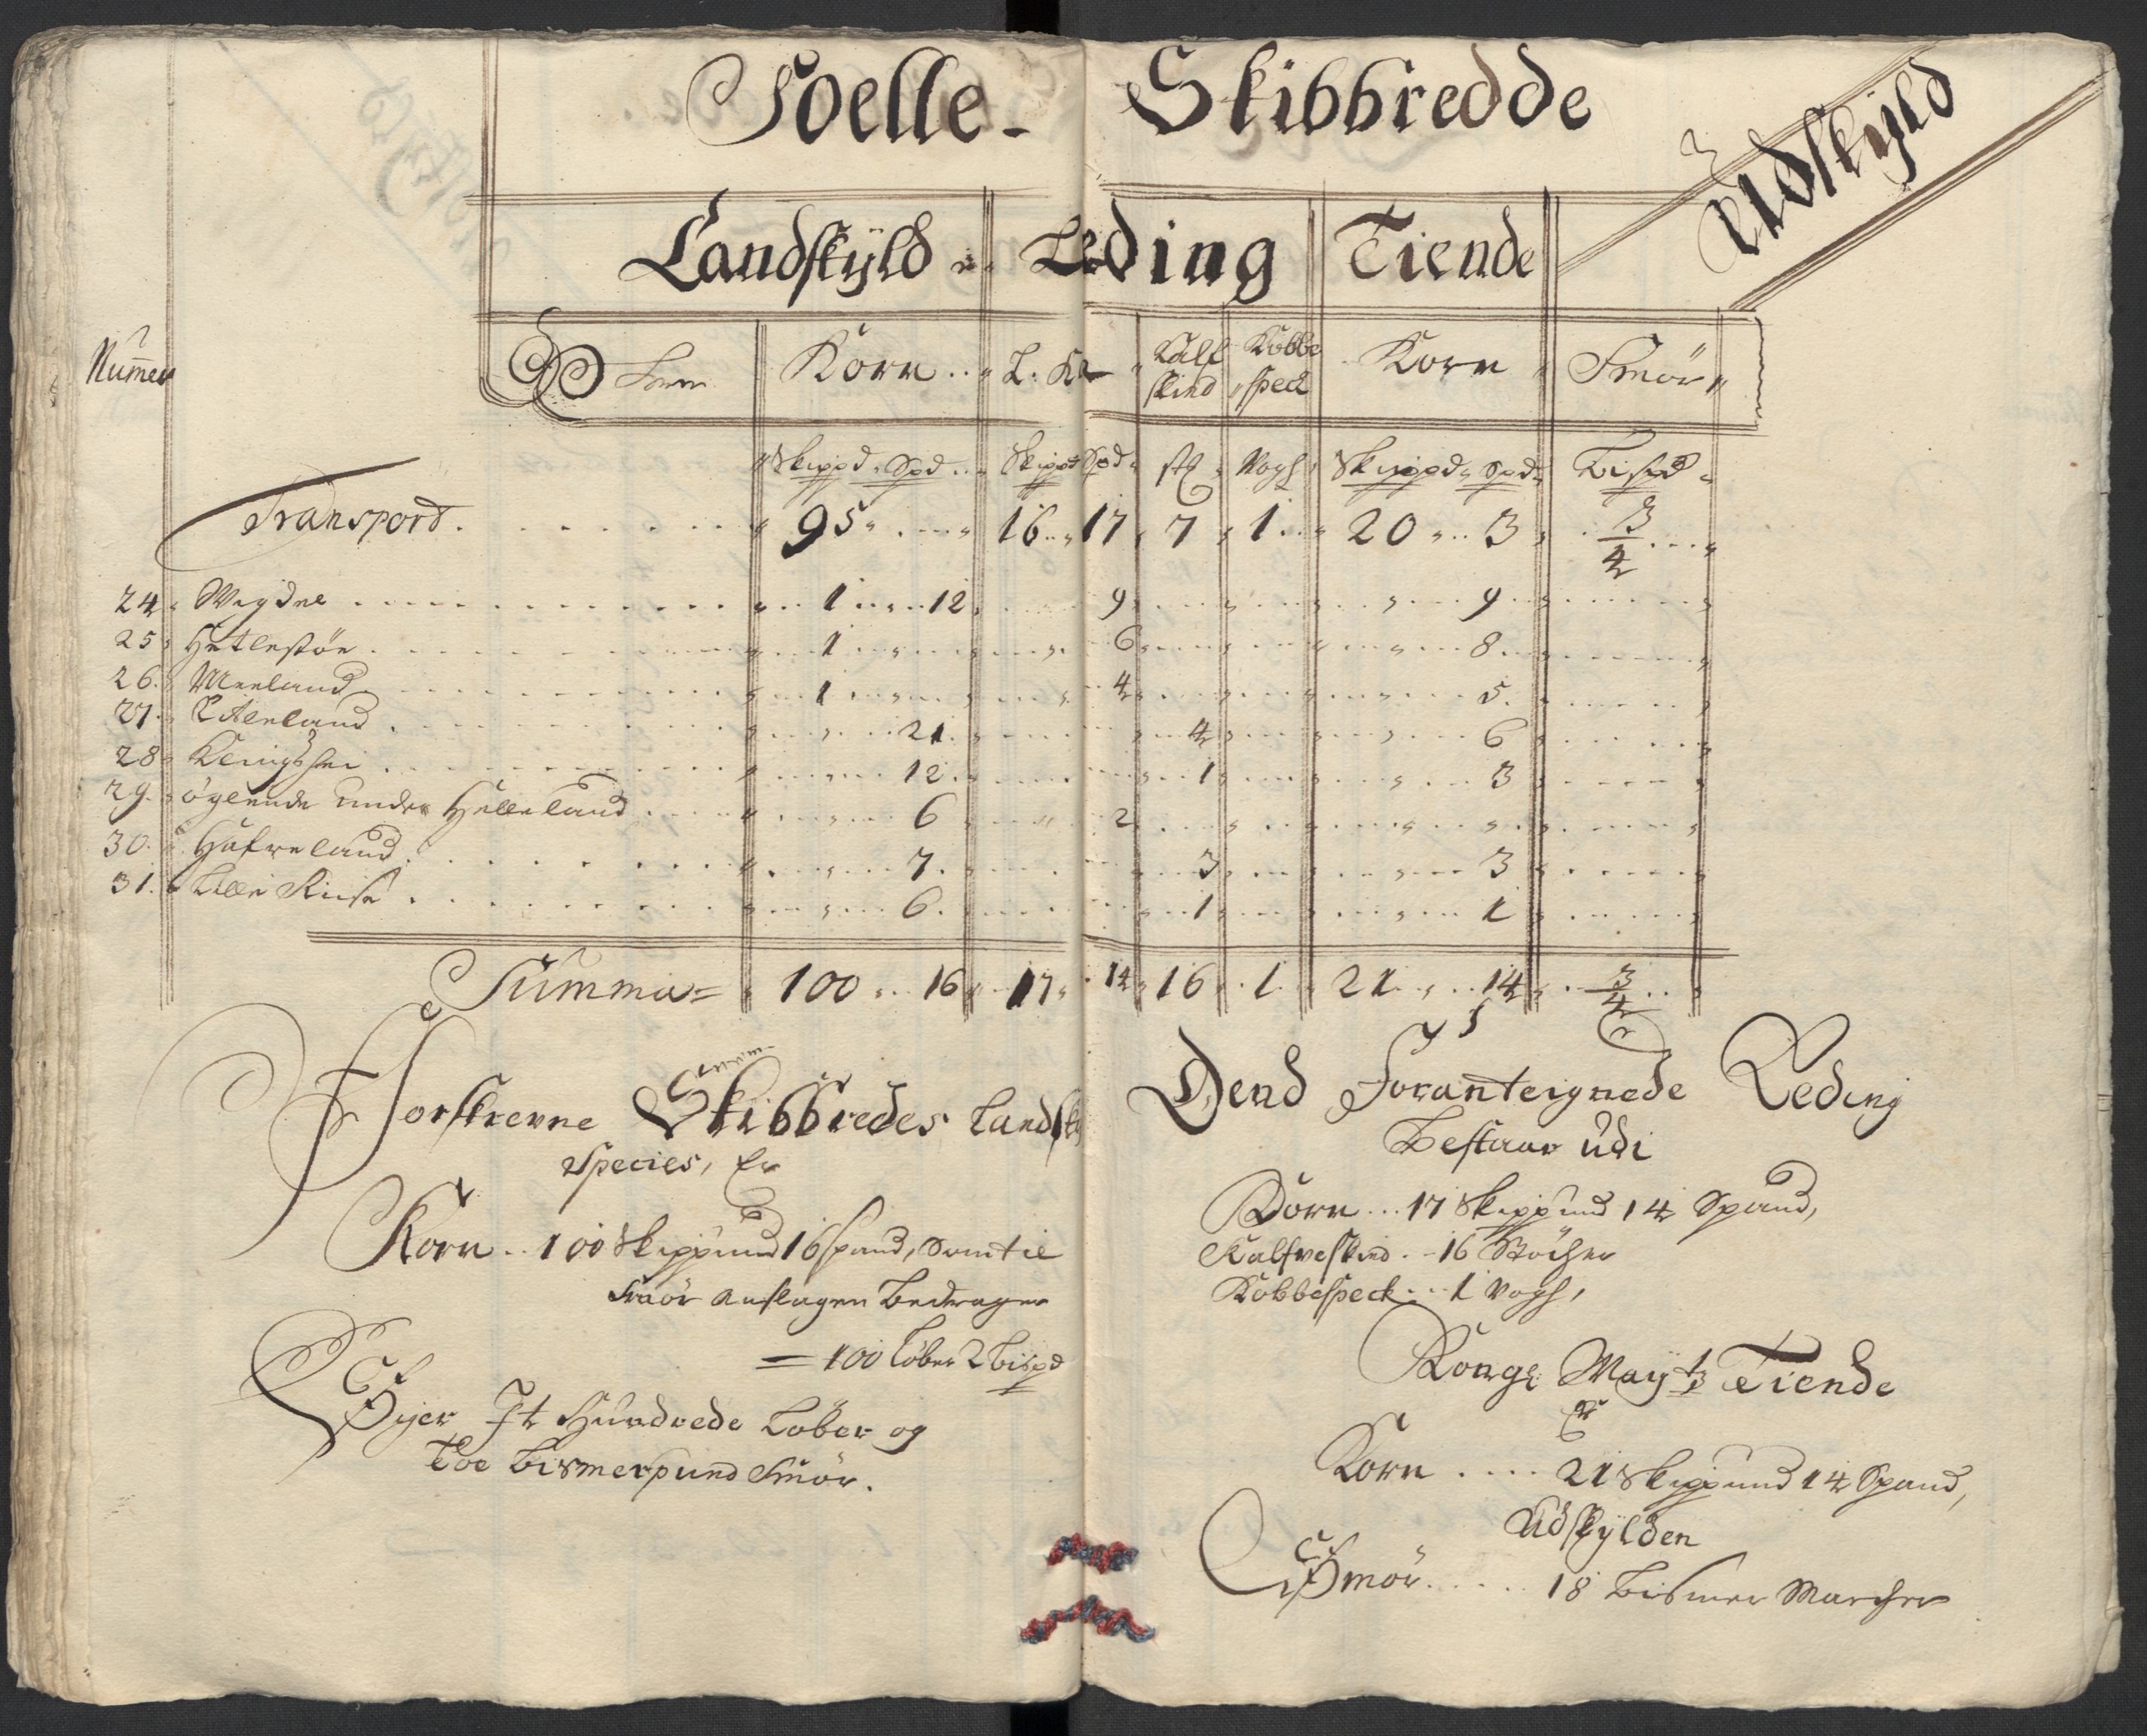 Soelle- Skibbredde
Udskyld
Landskyld Leding Tiende
Nummer
Korn L. Kn Kalfskind Kobbespeck Korn Smör
Skippd Spd Skippd Spd stk Vogh Skippd Spd Bispd
Transpord 95 16 17 7 1 20 3 3/4
24 1 12 9 9
25 Hetlestöe 1 6 8
26. Meeland 1 4 5
27. 21 4 6
28 12 1 3
29. öglende under Helleland 6 2
30. Hafreland 7 3 3
31. Lille Riise 6 1 1
Summa= 100 16 17 14 16 1 21 14 3/4
Forskrevne Skibbredes Landsk
Species, Er
Korn 100 Skippund 16 spand, som til
Smör anslagen bedrager
= 100 Löber 2 bispd
Siger It Hundrede Löber og
Toe Bismerpund Smör.
Dend Foranteignede Leding
Bestaar udi
Korn 17 Skippund 14 Spand,
Kalfveskind 16 Stöcher
Kobbespeck 1 Vogh,
Konge Mayts Tiende
Er
Korn 21 Skippund 14 Spand,
Udskylden
Smör 18 Bismer Marcher